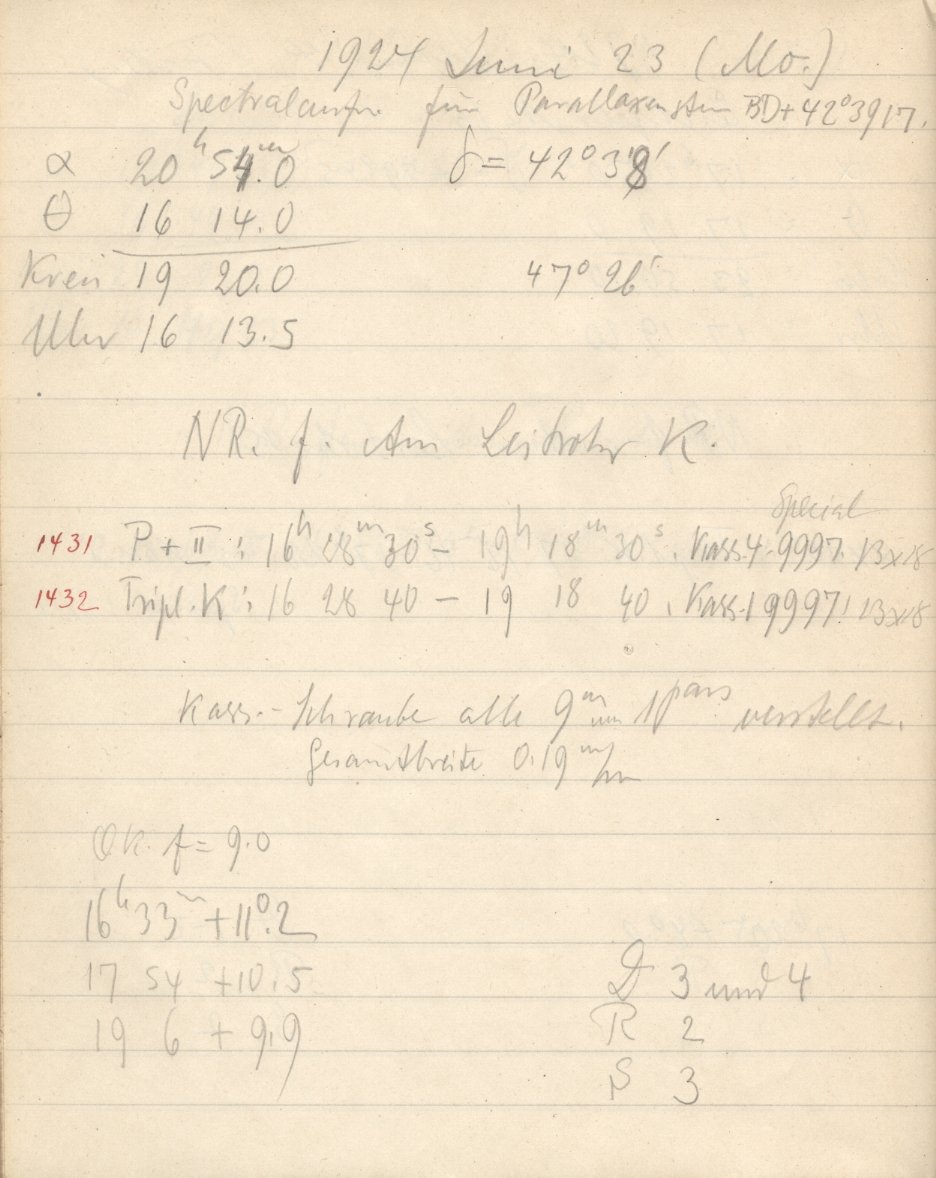 1924 Juni 23 (Mo.)
Spectralaufn. für Parallaxenstern BD+42°3917.
α 20ʰ 54ᵐ.0 δ = 42°38′
θ 16 14.0
Kreis 19 20.0 47° 26′
Uhr 16 13.5
NR. f. Am Leitrohr K.
Special
1431 P + II : 16ʰ 28ᵐ 30ˢ – 19ʰ 18ᵐ 30ˢ. Kass. 4 9997. 13x18
1432 Tripl. K : 16 28 40 – 19 18 40. Kass. 1 9997! 13x18
Kass.-Schraube alle 9ᵐ um 1ᵖᵃʳˢ verstellt.
Gesamtbreite 0.19 ᵐ/m
Ok. f = 9.0
16ʰ 33ᵐ +11°.2
17 54 +10.5
19 6 + 9.9
D 3 und 4
R 2
S 3